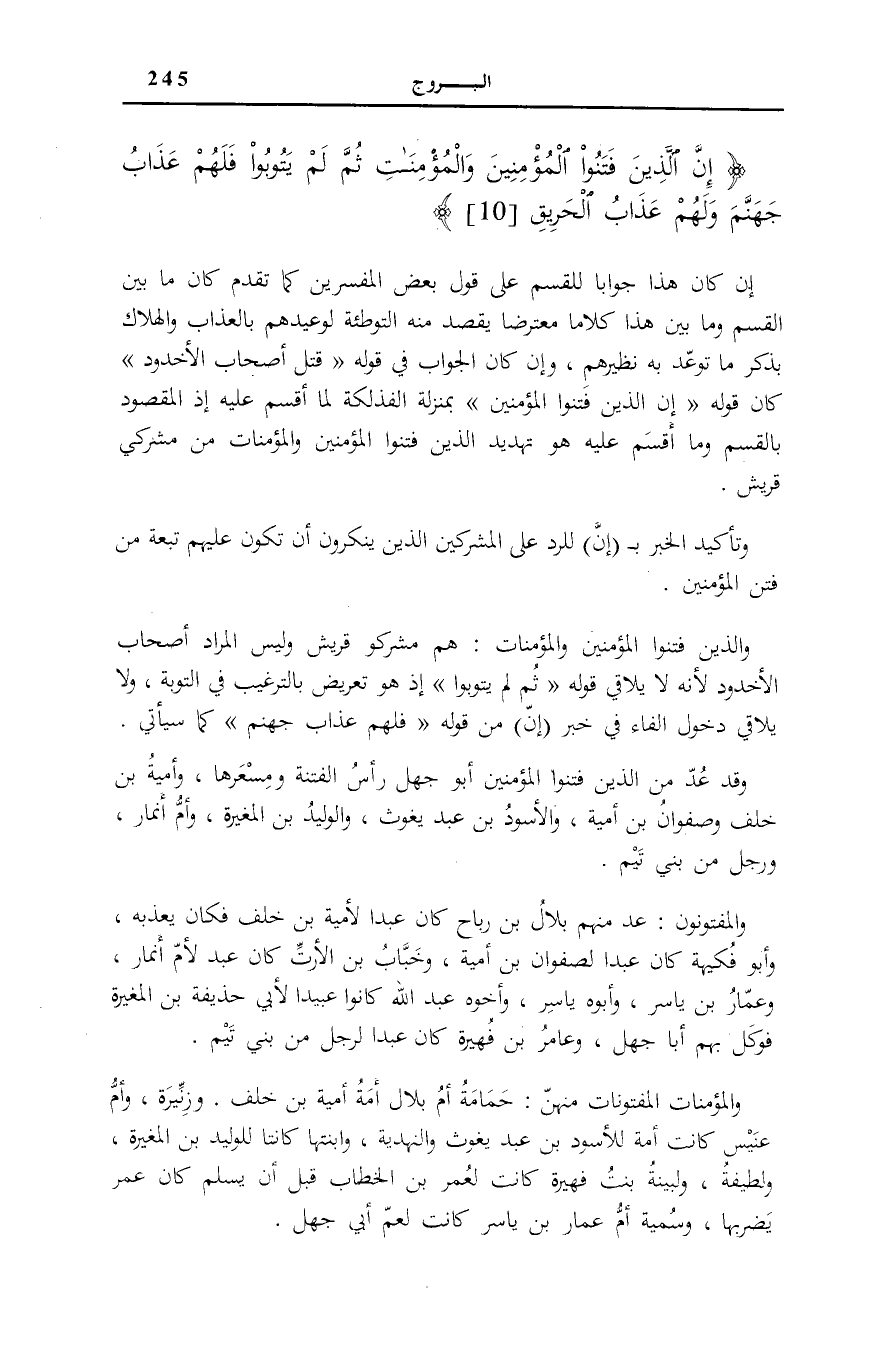 البـــــروج 245
﴿ إِنَّ ٱلَّذِينَ فَتَنُواْ ٱلْمُؤْمِنِينَ وَالْمُؤْمِنَـٰتِ ثُمَّ لَمْ يَتُوبُواْ فَلَهُمْ عَذَابُ
جَهَنَّمَ وَلَهُمْ عَذَابُ ٱلْحَرِيقِ [10] ﴾
إن كان هذا جوابا للقسم على قول بعض المفسرين كما تقدم كان ما بين
القسم وما بين هذا كلاما معترضا يقصد منه التوطئة لوعيدهم بالعذاب والهلاك
بذكر ما توعّد به نظيرهم ، وإن كان الجواب في قوله « قتل أصحاب الأخدود »
كان قوله « إن الذين فَتنوا المؤمنين » بمنزلة الفذلكة لما أقسم عليه إذ المقصود
بالقسم وما أُقسَم عليه هو تهديد الذين فتنوا المؤمنين والمؤمنات من مشركي
قريش .
وتأكيد الخبر بـ (إنَّ) للرد على المشركين الذين ينكرون أن تكون عليهم تبعة من
فتن المؤمنين .
والذين فتنوا المؤمنين والمؤمنات : هم مشركو قريش وليس المراد أصحاب
الأخدود لأنه لا يلاقي قوله « ثُم لم يتوبوا » إذ هو تعريض بالترغيب في التوبة ، ولا
يلاقي دخول الفاء في خبر (إنّ) من قوله « فلهم عذاب جهنم » كما سيأتي .
وقد عُدّ من الذين فتنوا المؤمنين أبو جهل رأسُ الفتنة ومِسْعَرها ، وأميةُ بن
خلف وصفوانُ بن أمية ، والأسودُ بن عبد يغوث ، والوليدُ بن المغيرة ، وأمُّ أنمار ،
ورجل من بني تَيْم .
والمفتونون : عد منهم بلالُ بن رباح كان عبدا لأمية بن خلف فكان يعذبه ،
وأبو فُكيهة كان عبدا لصفوان بن أمية ، وخَبَّابُ بن الأرتِّ كان عبد لأمّ أنمار ،
وعمّارُ بن ياسر ، وأبوه ياسِر ، وأخوه عبد الله كانوا عبيدا لأبي حذيفة بن المغيرة
فوكَل بهم أبا جهل ، وعامرُ بن فُهيرة كان عبدا لرجل من بني تَيْم .
والمؤمنات المفتونات منهنّ : حَمَامَةُ أمُ بلال أمَةُ أمية بن خلف . وزِنِّيرَة ، وأمُّ
عنَيْس كانت أمة للأسود بن عبد يغوث والنهدية ، وابنتها كانتا للوليد بن المغيرة ،
ولطيفةُ ، ولبينةُ بنتُ فهيرة كانت لعُمر بن الخطاب قبل أن يسلم كان عمر
يَضربها ، وسُمية أمُّ عمار بن ياسر كانت لعمّ أبي جهل .